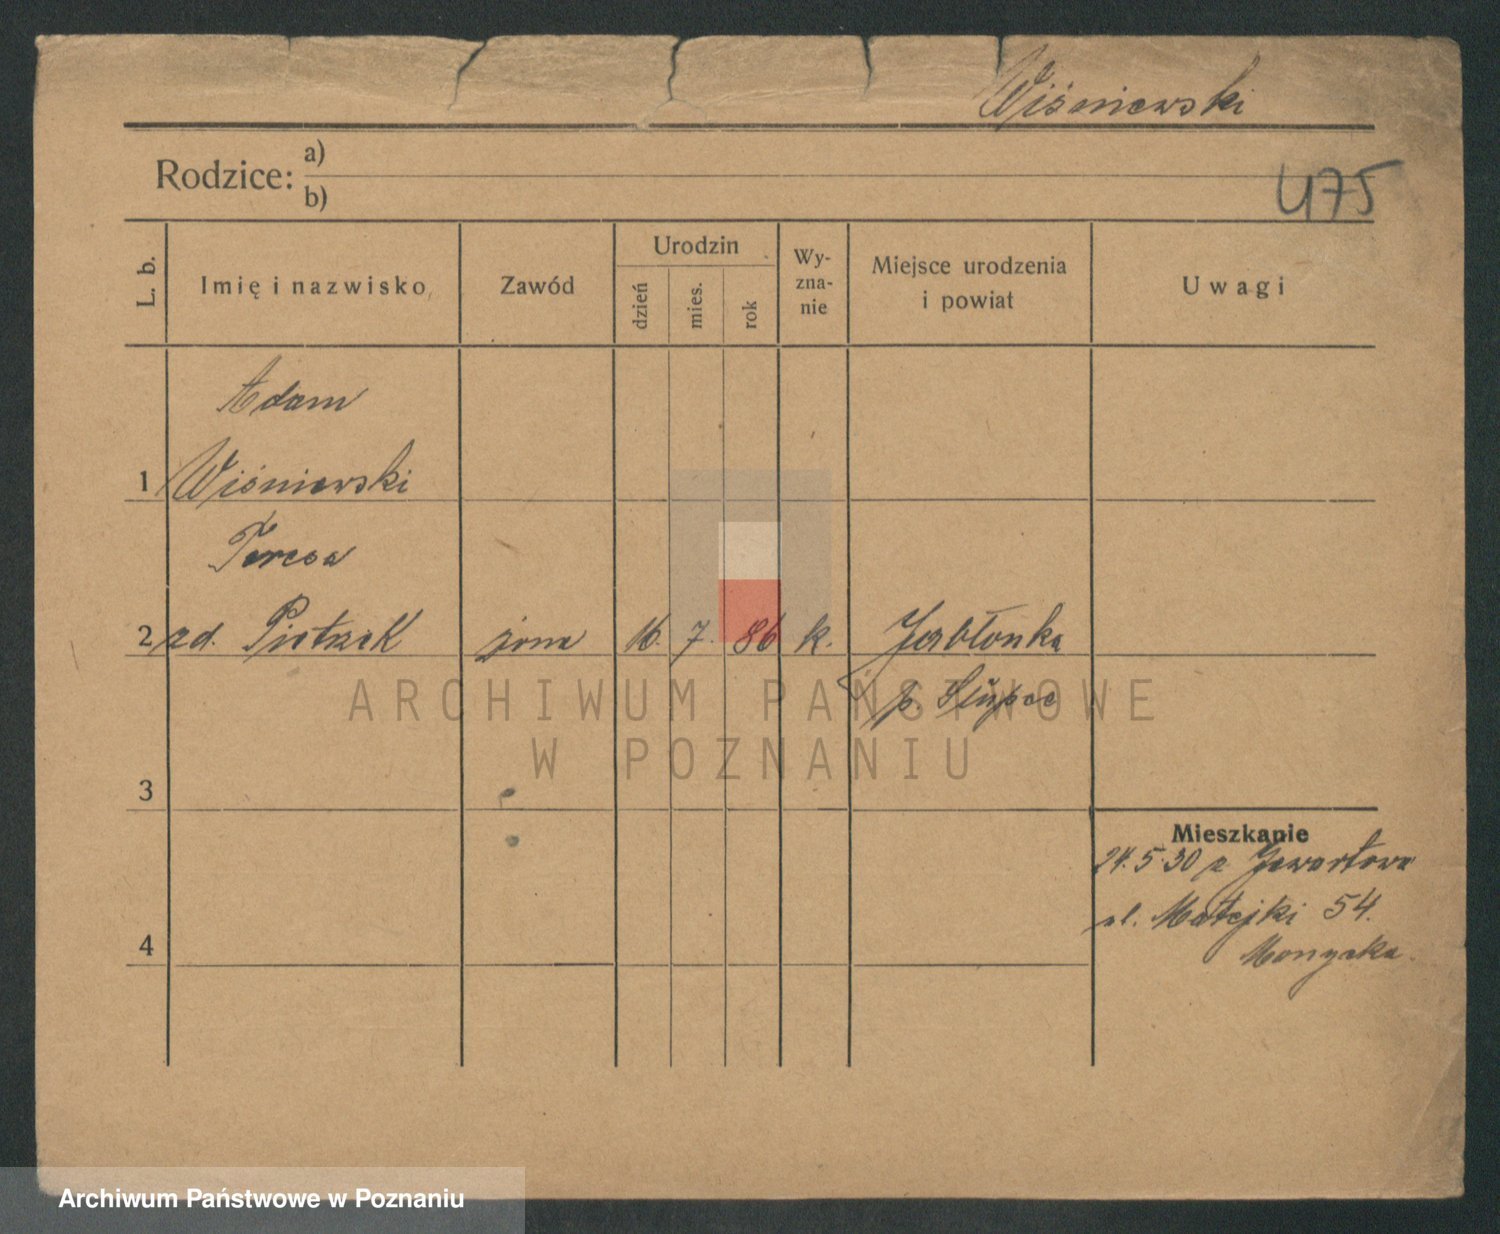 Wiśniewski
Rodzice: a)
b)
475
L. b.
Imię i nazwisko
Zawód
Urodzin
dzień
mies.
rok
Wy-
zna-
nie
Miejsce urodzenia
i powiat
Uwagi
Adam
1 Wiśniewski
Teresa
2 zd. Pietrzak żona 16. 7. 86 k. Jabłonka
p. Słupce
ARCHIWUM PAŃSTWOWE
W POZNANIU
3
Mieszkanie
24.5.30 z
ul. Matejki 54.
4
Archiwum Państwowe w Poznaniu